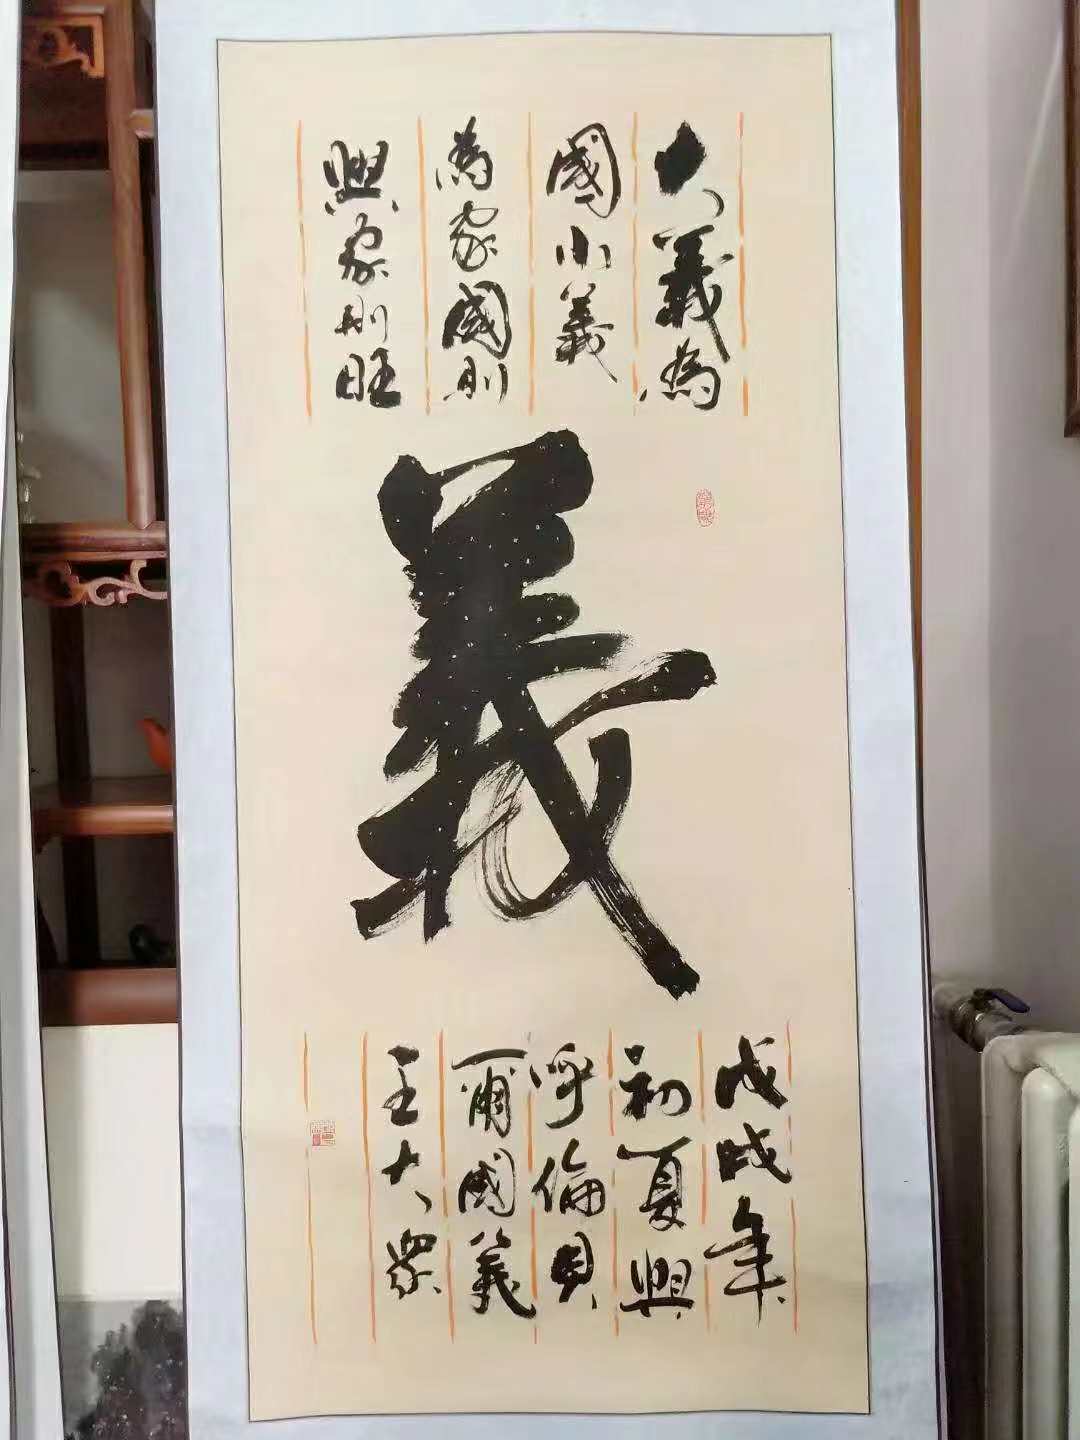 大義為
國小義
為家國則
興家則旺
義
戊戌年
初夏興
呼倫貝
爾國義
王大衆